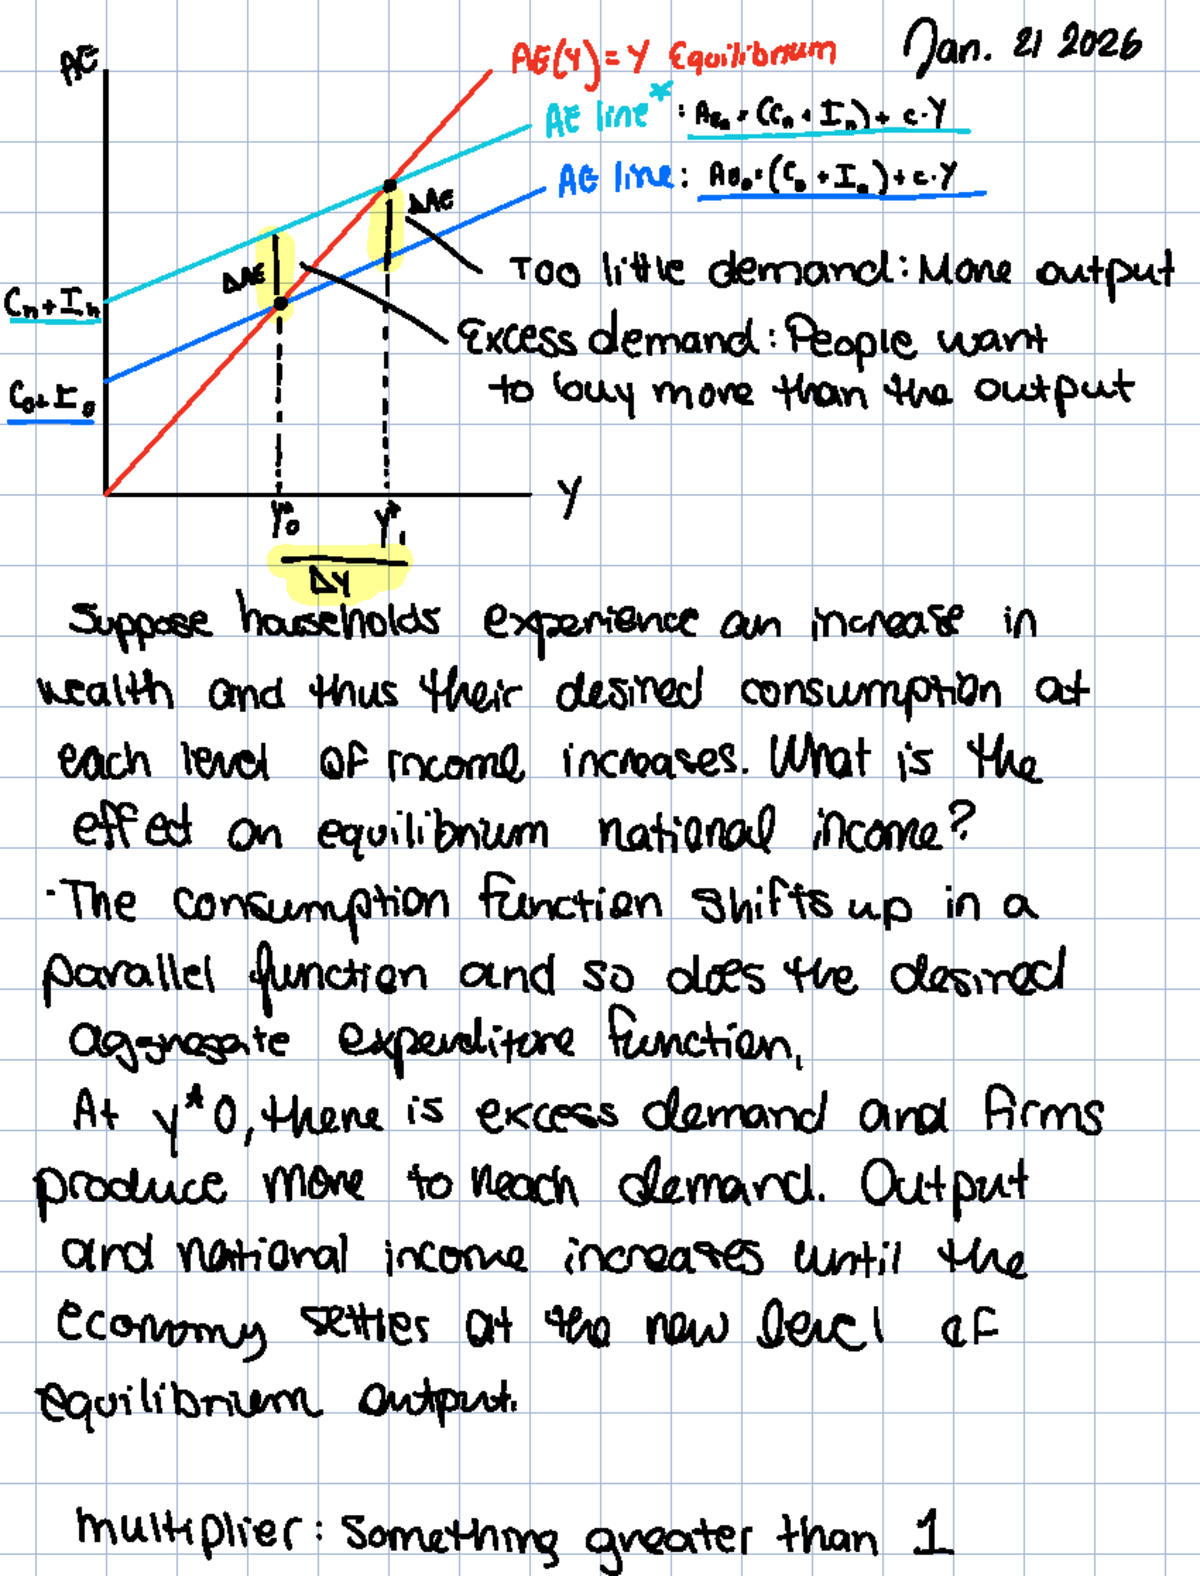 Jan. 21 2026
AE
AE(Y) = Y Equilibrium
AE line* : AEn = (Cn + In) + c·Y
AE line: AE0 = (C0 + I0) + c·Y
ΔAE
ΔAE
Too little demand: More output
Cn+In
Excess demand: People want
to buy more than the output
C0+I0
Y
Y*0
Y*1
ΔY
Suppose households experience an increase in
wealth and thus their desired consumption at
each level of income increases. What is the
effect on equilibrium national income?
·The consumption function shifts up in a
parallel function and so does the desired
aggregate expenditure function.
At y*0, there is excess demand and firms
produce more to reach demand. Output
and national income increases until the
economy settles at the new level of
equilibrium output.
multiplier: Something greater than 1